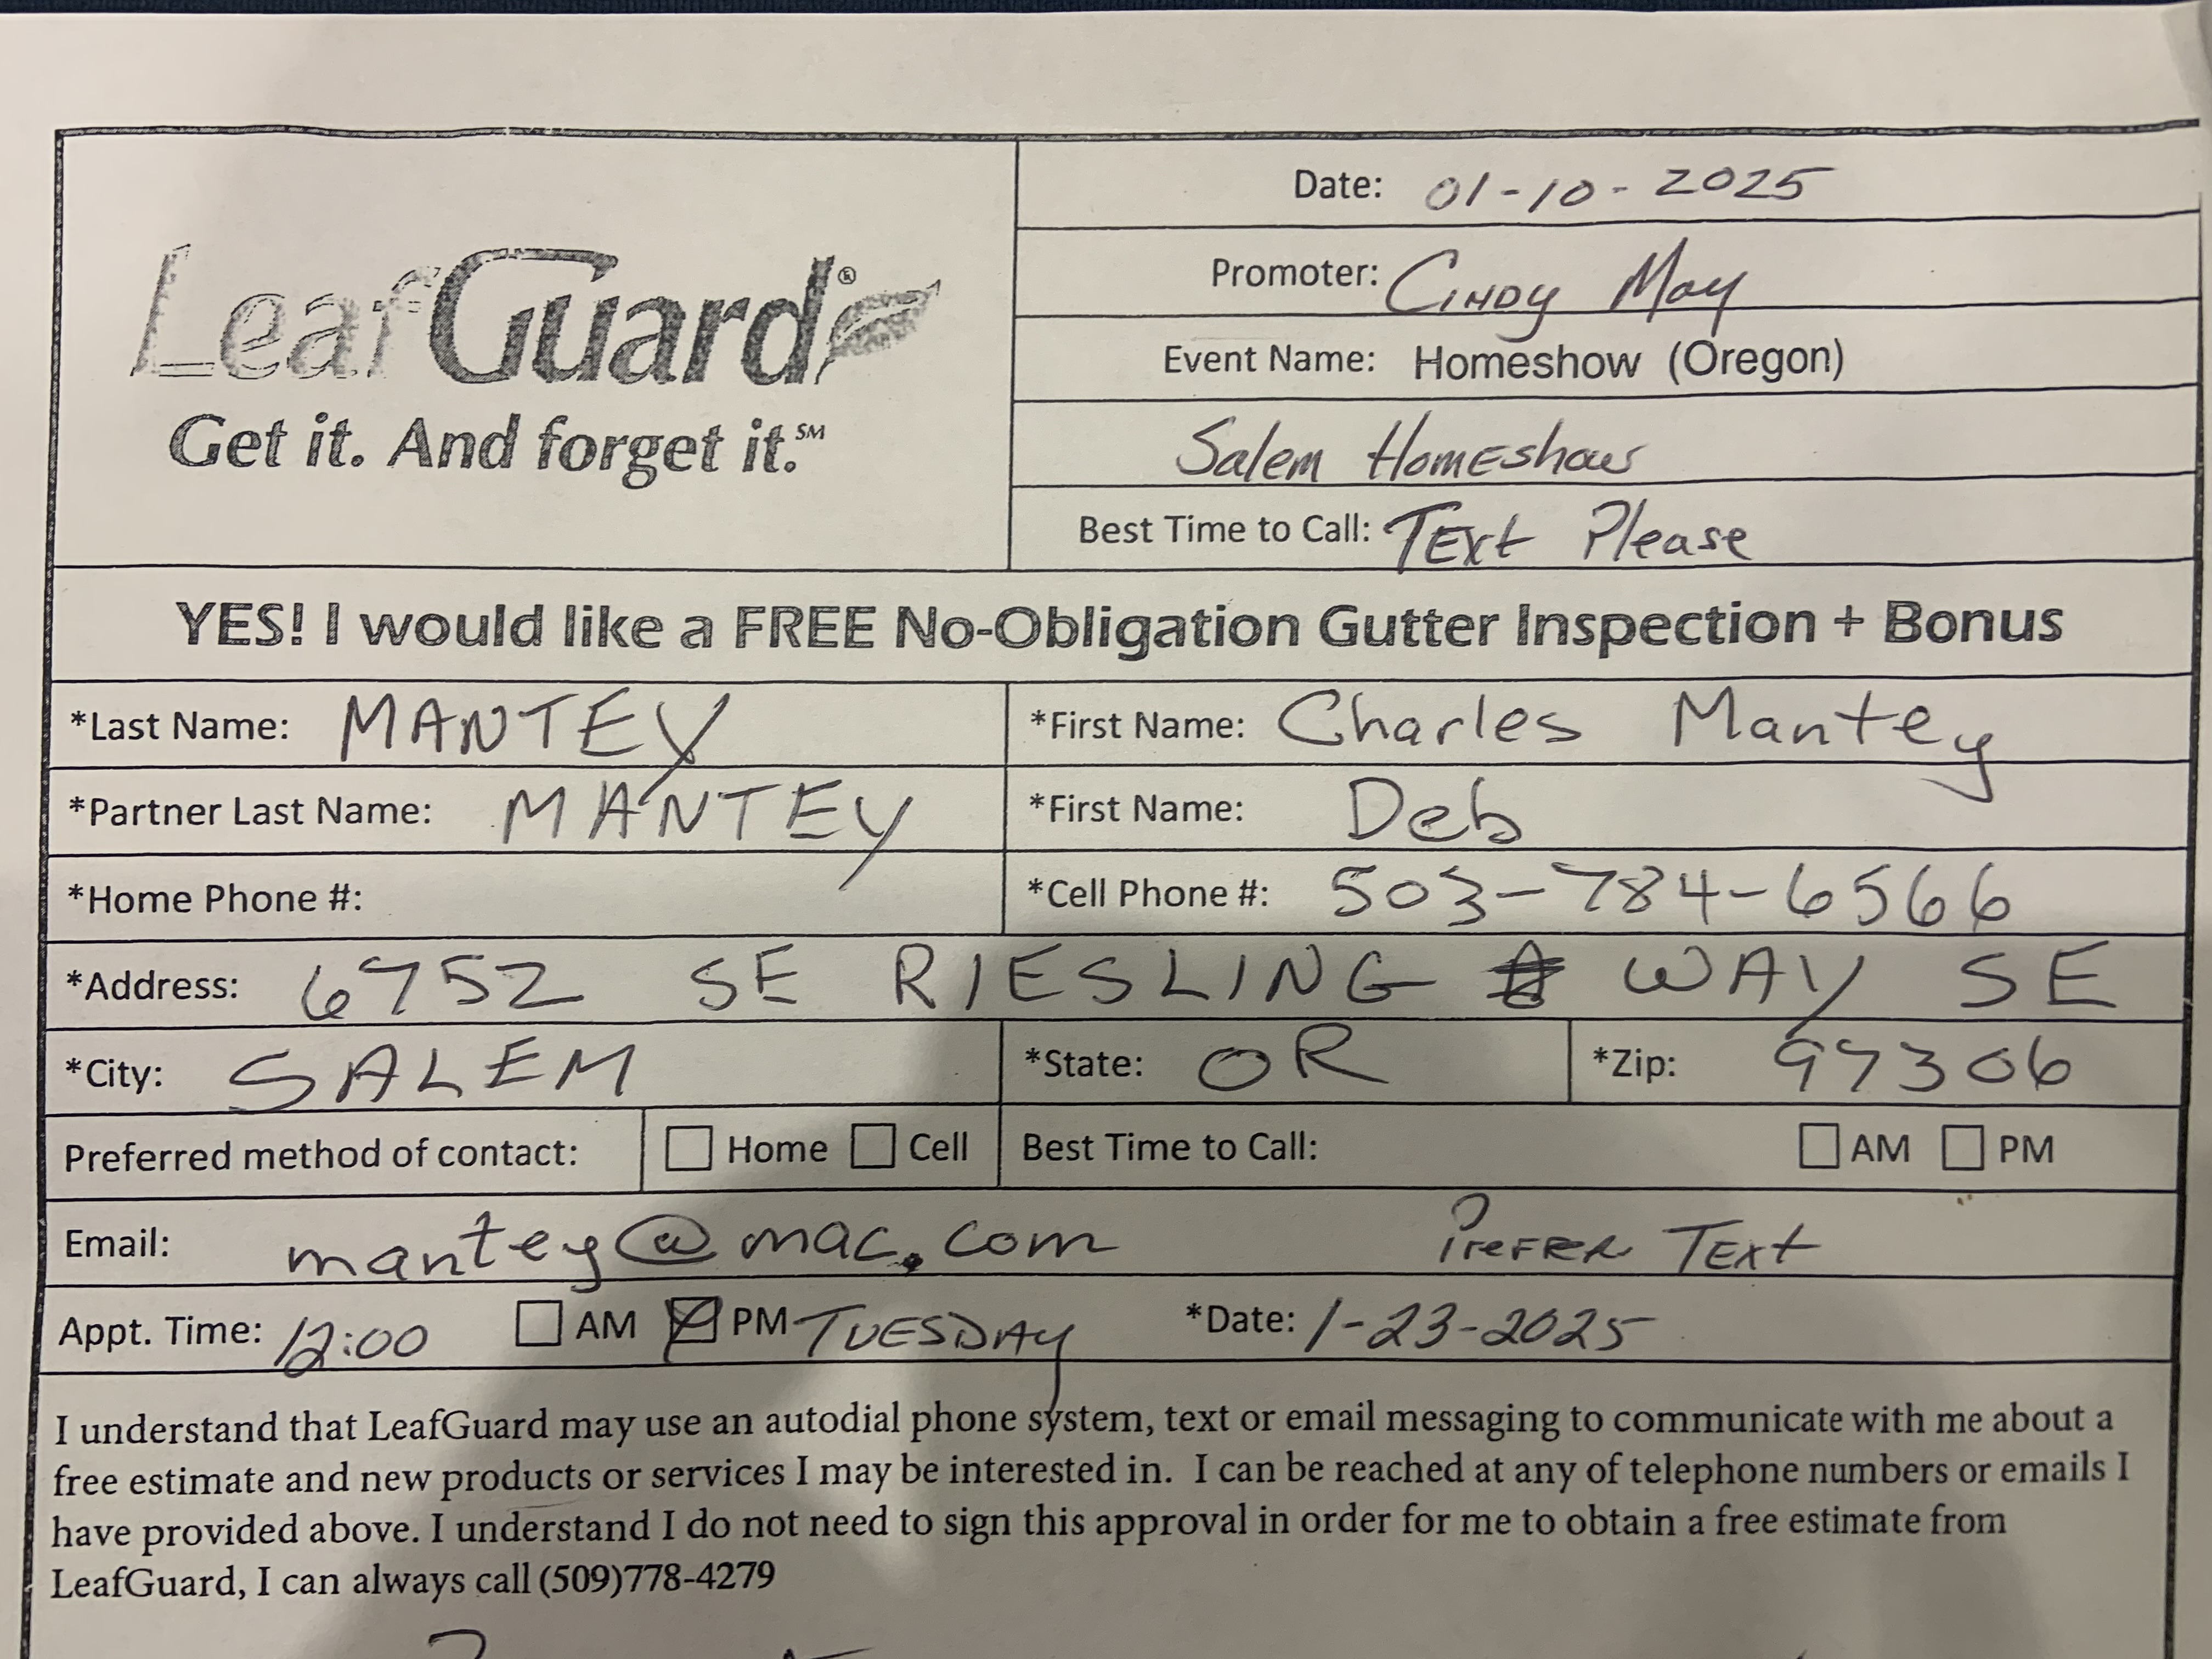 LeafGuard®
Get it. And forget it.℠
Date: 01-10-2025
Promoter: Cindy May
Event Name: Homeshow (Oregon)
Salem Homeshow
Best Time to Call: Text Please
YES! I would like a FREE No-Obligation Gutter Inspection + Bonus
*Last Name: MANTEY *First Name: Charles Mantey
*Partner Last Name: MANTEY *First Name: Deb
*Home Phone #: *Cell Phone #: 503-784-6566
*Address: 6752 SE RIESLING WAY SE
*City: SALEM *State: OR *Zip: 97306
Preferred method of contact: ☐ Home ☐ Cell Best Time to Call: ☐ AM ☐ PM
Email: mantey@mac.com Prefer Text
Appt. Time: 12:00 ☐ AM ☒ PM TUESDAY *Date: 1-23-2025
I understand that LeafGuard may use an autodial phone system, text or email messaging to communicate with me about a
free estimate and new products or services I may be interested in. I can be reached at any of telephone numbers or emails I
have provided above. I understand I do not need to sign this approval in order for me to obtain a free estimate from
LeafGuard, I can always call (509)778-4279